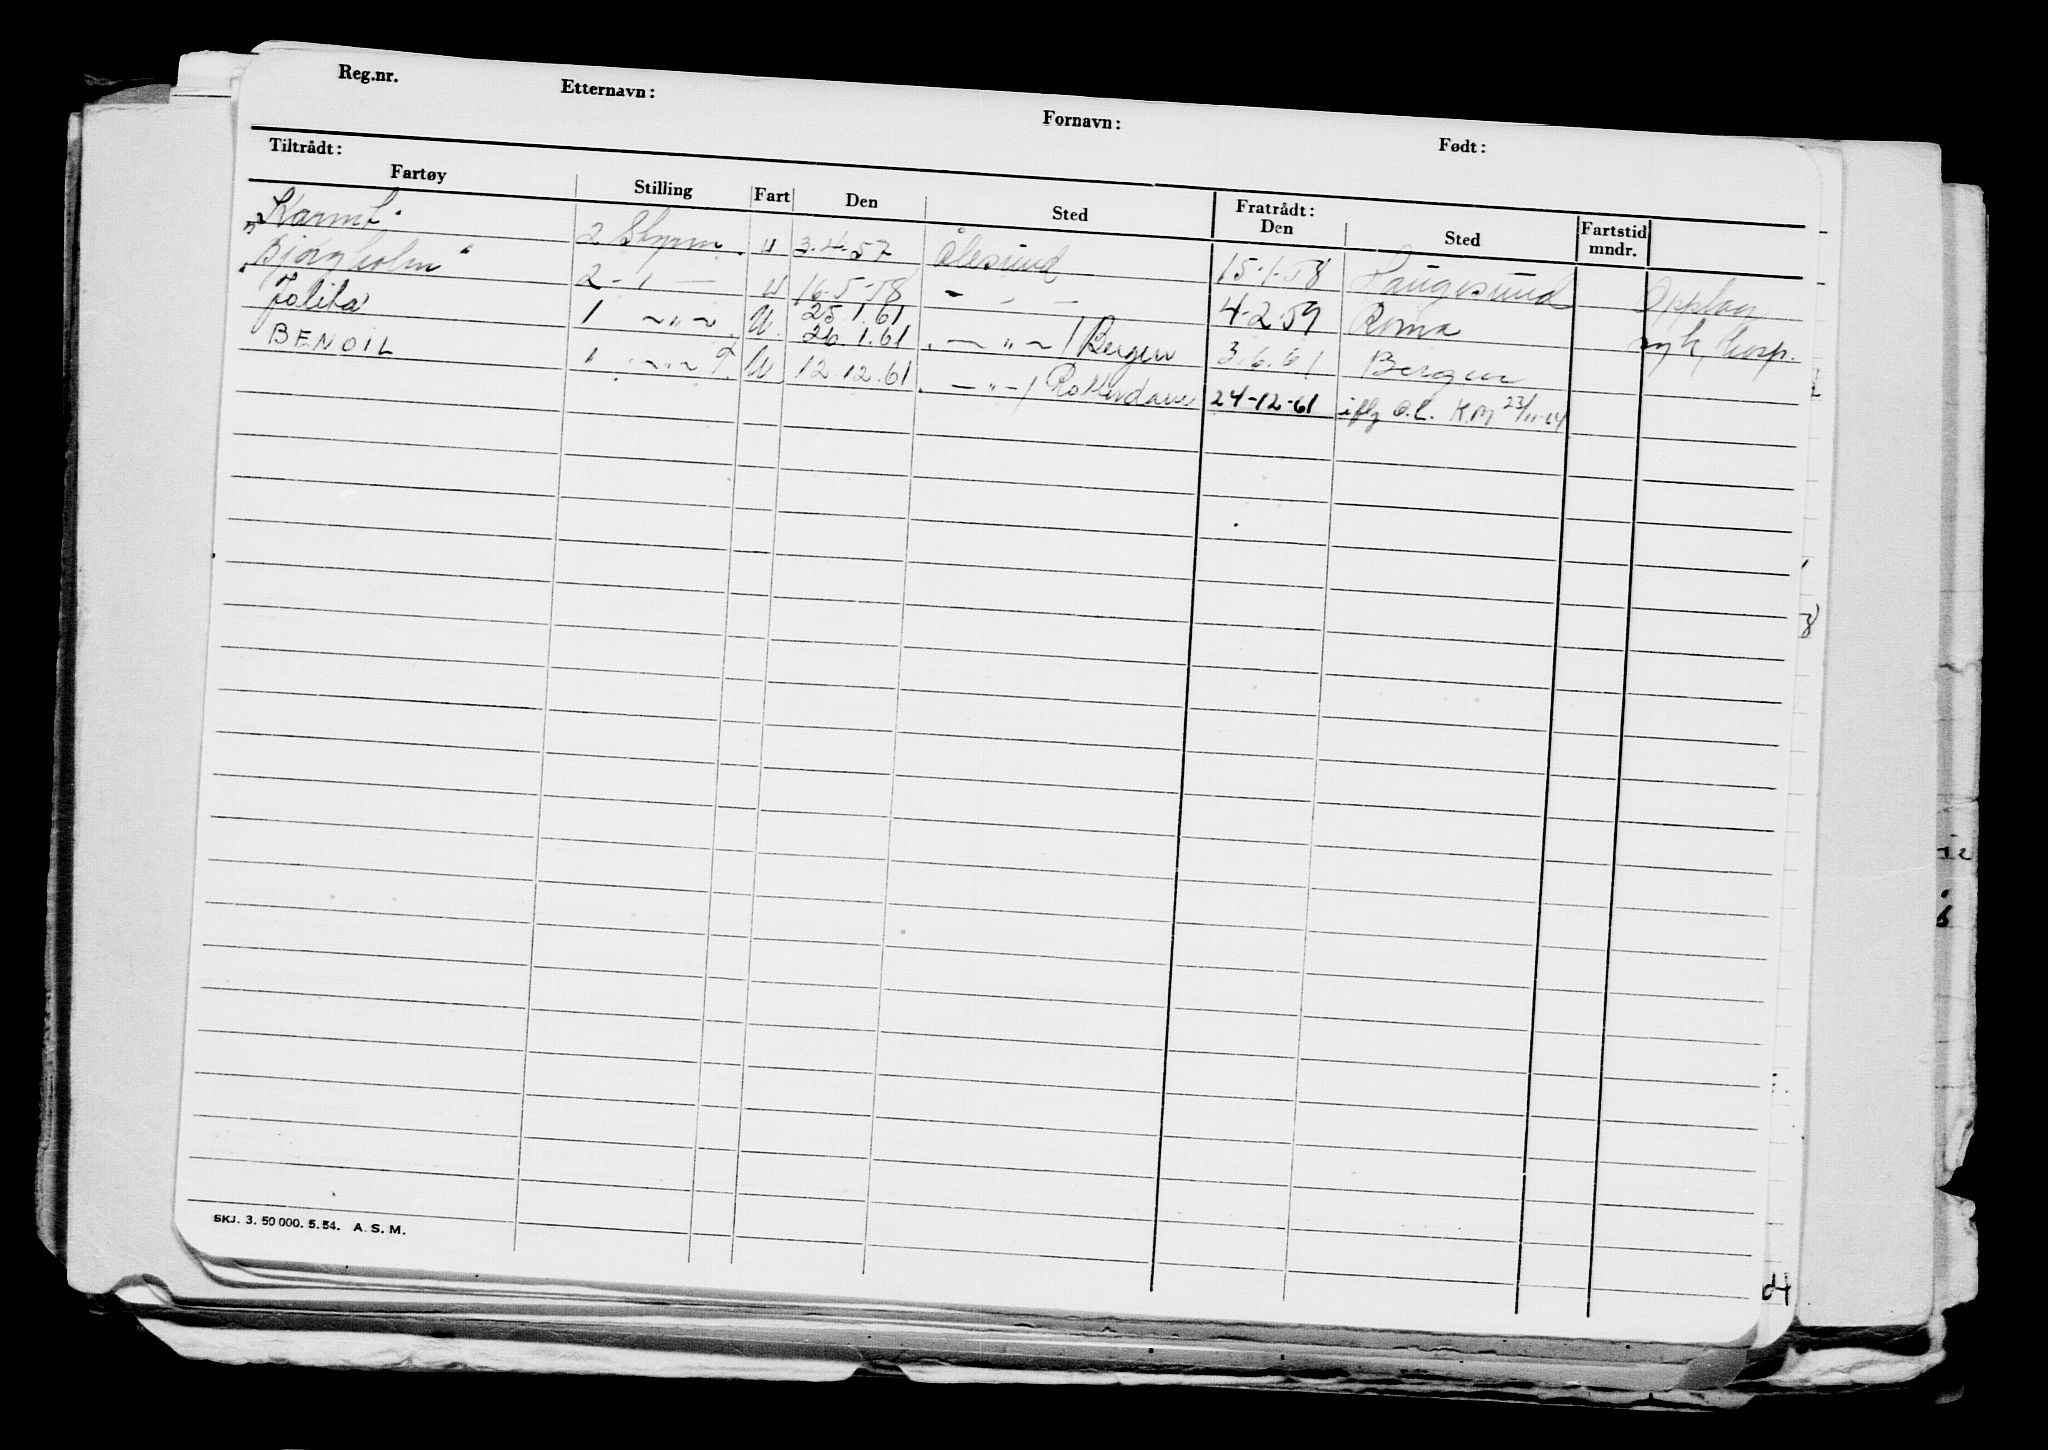 Reg.nr. Etternavn: Fornavn: Født:
Tiltrådt: Fratrådt:
Fartøy Stilling Fart Den Sted Den Sted Fartstid mndr.
"Karmt" 2 Styrm. U 3.4-57 Ålesund 15-1-58 Haugesund Opplag
"Bjørgholm" 2 - " - U 16-5-58 - " - 4-2-59 Roma syk, hosp.
Jolita 1 - " - U. 25.1.61 26.1.61 - " - / Bergen 3.6.61 Bergen
BENOIL 1 - " - T. U 12.12.61 - " - / Rotterdam 24-12-61 iflg O.L. K.M 23/11-64
SKJ. 3. 50 000. 5. 54. A. S. M.